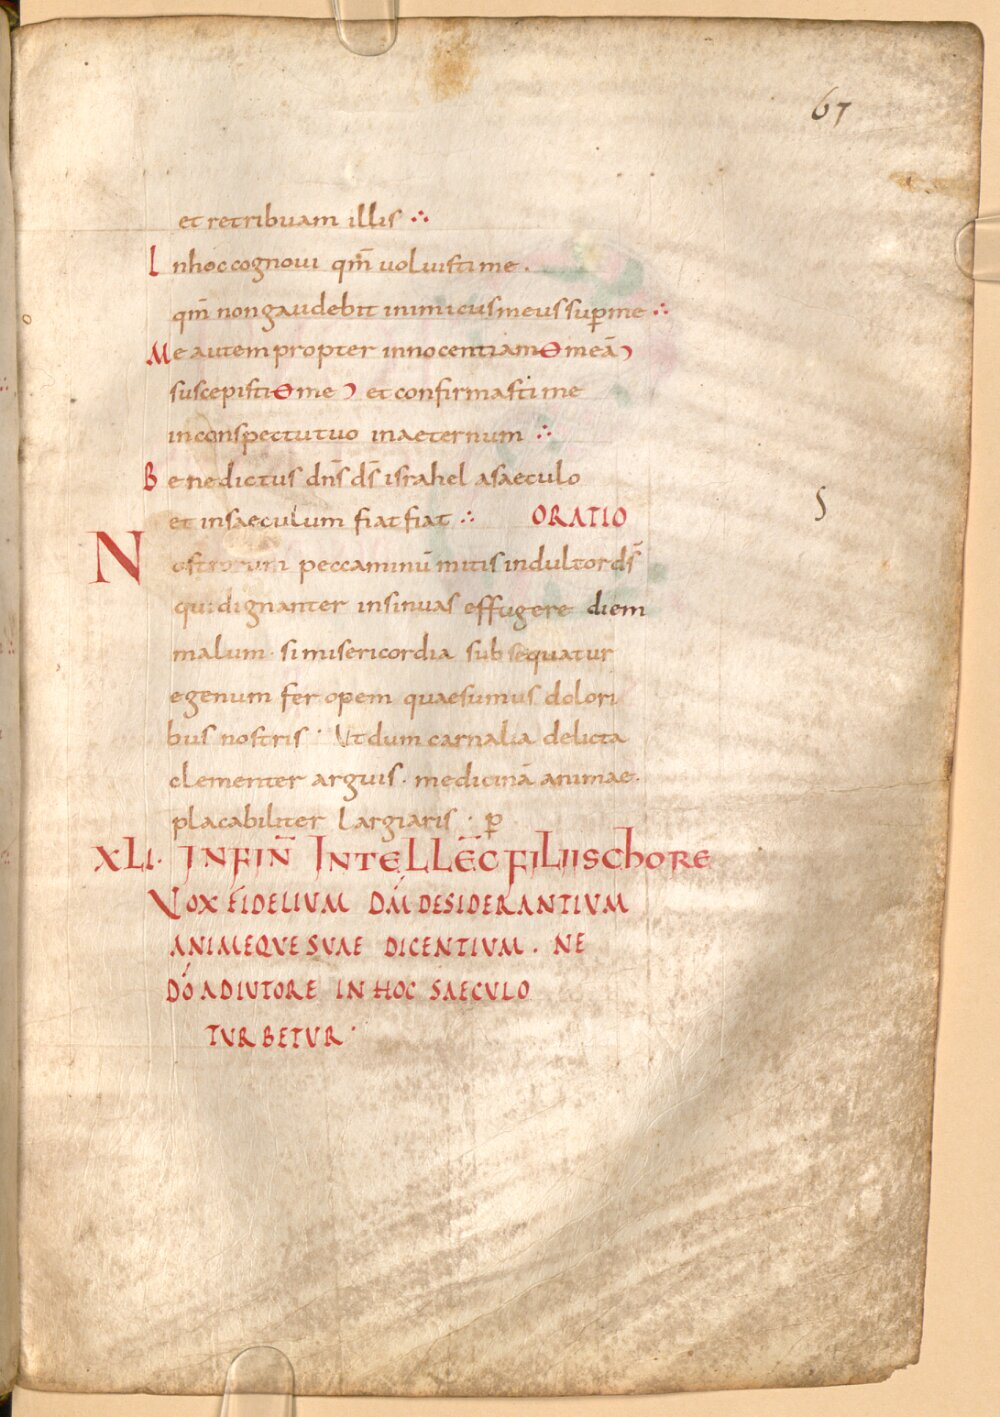 67
et retribuam illis ∴
I nhoc cognoui qm̄ uoluisti me .
qm̄ non gaudebit inimicus meus sup me ∴
Me autem propter innocentiam ⊖ meā ͻ
suscepisti ⊖ me ͻ et confirmasti me
in conspectu tuo in aeternum ∴
B enedictus dn̄s ds̄ israhel a saeculo
et in saeculum fiat fiat ∴ ORATIO
N ostrorum peccaminū mitis indultor ds̄
S
qui dignanter insinuas effugere diem
malum · si misericordia subsequatur
egenum fer opem quaesumus dolori
bus nostris · Ut dum carnalia delicta
clementer arguis · medicinā animae ·
placabiliter largiaris · p
XLI · IN FIN̄ INTELLEC̄ FILIIS CHORE
VOX FIDELIUM DM̄ DESIDERANTIUM
ANIMEQUE SUAE DICENTIUM · NE
DŌ ADIUTORE IN HOC SAECULO
TURBETUR ·